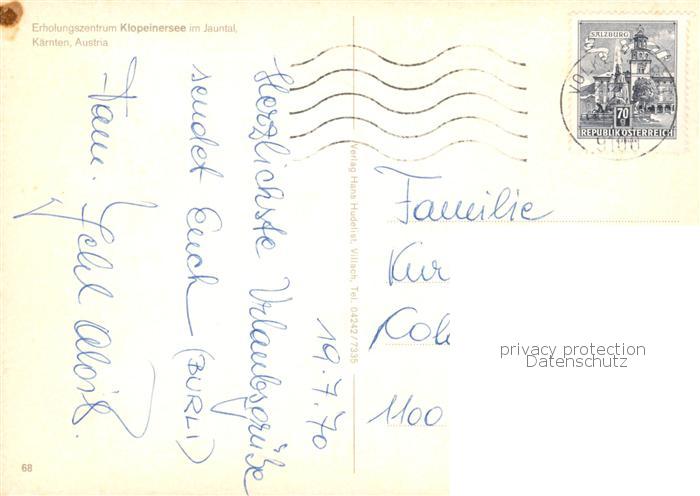 Erholungszentrum Klopeinersee im Jauntal,
Kärnten, Austria
SALZBURG
70
REPUBLIK ÖSTERREICH
19.7.70
Herzlichste Urlaubsgrüße
sendet Euch (BURLI)
Fam. Alois
Verlag Hans Hudelist, Villach, Tel. 04242/7335
Familie
Kur
1100
privacy protection
Datenschutz
68